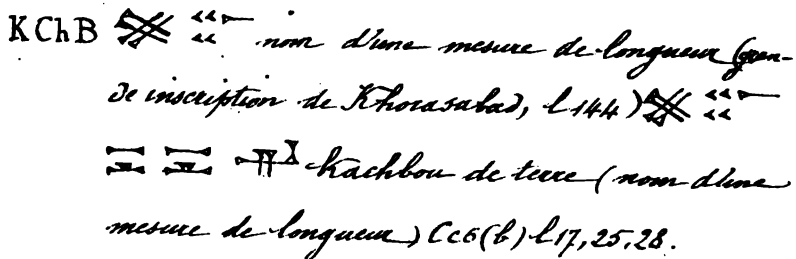 KChB nom d'une mesure de longueur (gran-
de inscription de Khorasabad, l 144)
kachbou de terre (nom d'une
mesure de longueur) Cc6(b) l 17, 25, 28.